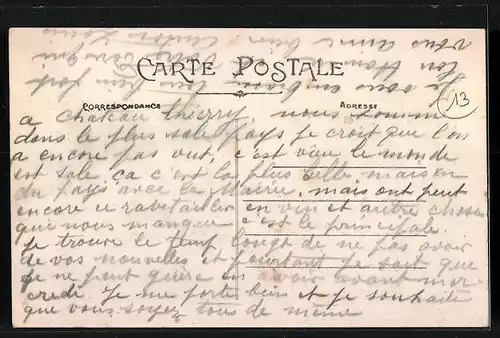 CARTE POSTALE
CORRESPONDANCE
ADRESSE
13
a chateau thierry, nous somme
dans le plus sale pays je croit que l'on
a encore pas vut, c'est vieu le monde
est sale ca c'est la plus belle maison
du pays avec la Mairie, mais ont peut
encore ce ravitailler en vin et autre chose
que nous manque c'est le principale.
Je trouve le temp longt de ne pas avoir
de vos nouvelles et pourtant je sait que
je ne peut guère en avoir avant mer
credi. Je me porte bien et je souhaite
que vous soyez tous de même
Je vous embrasse tous bien fort
ton
vous aime bien
Louis